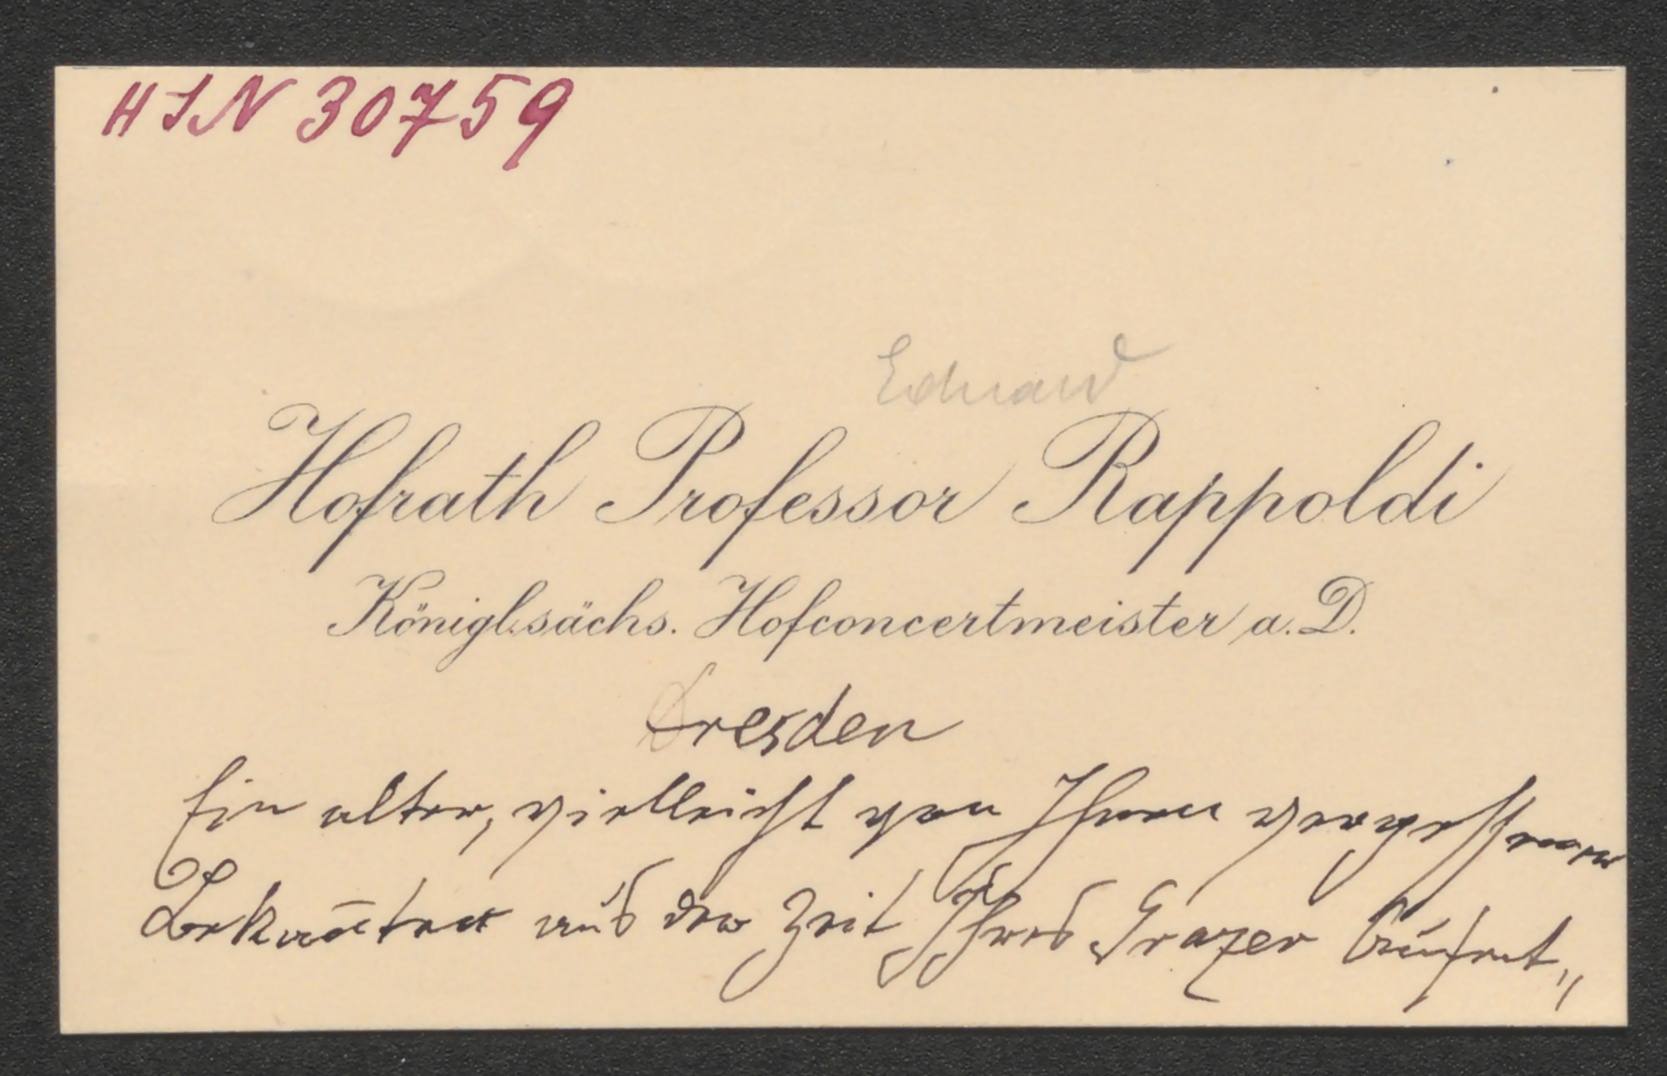 HIN 30759
Eduard
Hofrath Professor Rappoldi
Königl. sächs. Hofconcertmeister a. D.
Dresden
Ein alter, vielleicht von Ihnen vergessener
Bekan̄ter aus der Zeit Ihres Grazer